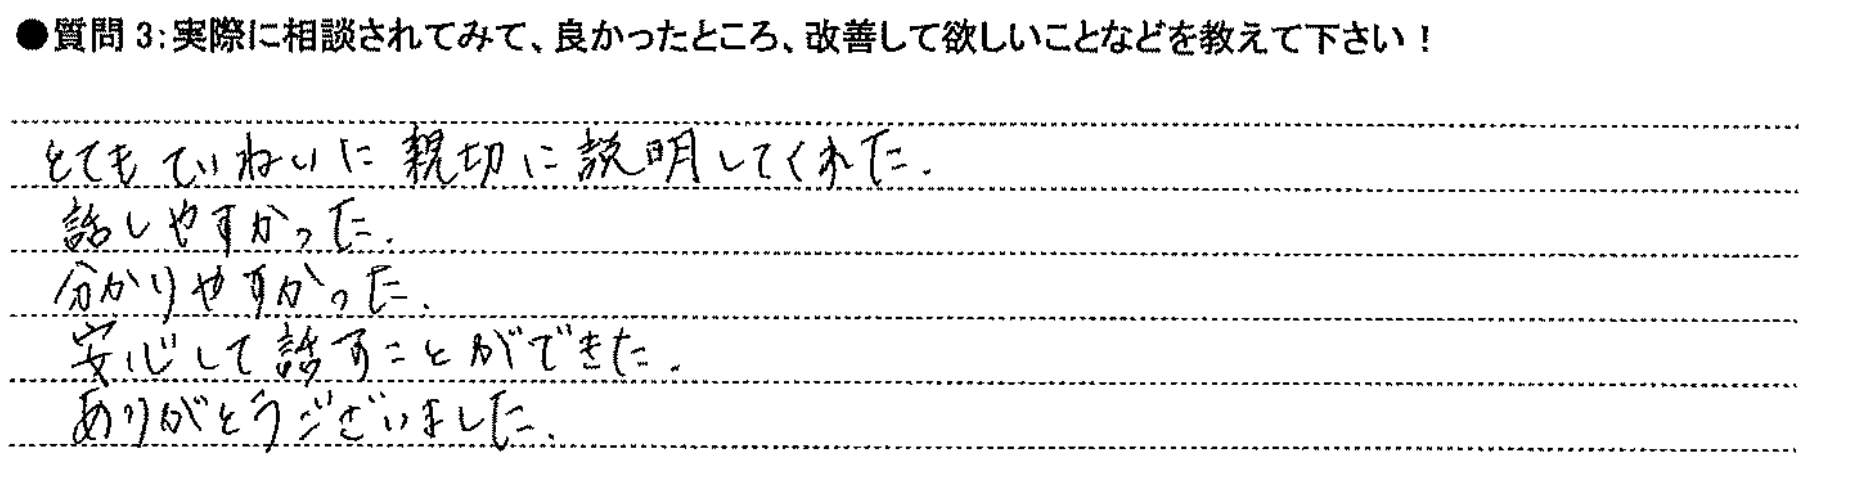 ●質問 3:実際に相談されてみて、良かったところ、改善して欲しいことなどを教えて下さい!
とてもていねいに親切に説明してくれた.
話しやすかった.
分かりやすかった.
安心して話すことができた.
ありがとうございました.